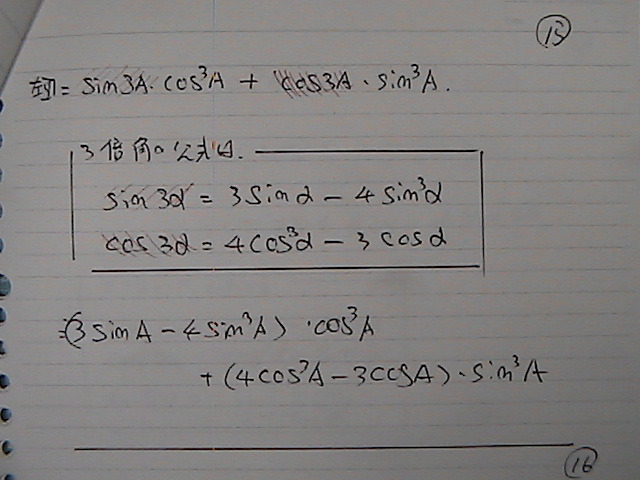 ⑮
左辺 = sin3A・cos³A + cos3A・sin³A.
3倍角の公式は.
sin3α = 3sinα − 4sin³α
cos3α = 4cos³α − 3cosα
=(3sinA − 4sin³A)・cos³A
+(4cos³A − 3cosA)・sin³A
⑯